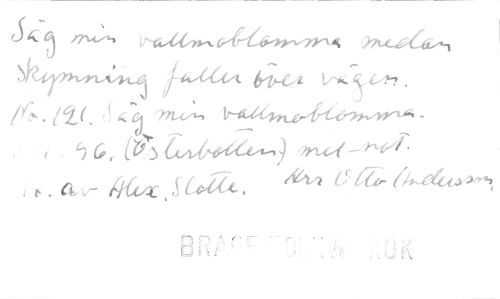 Säg min vallmoblomma medan
skymning faller över vägen.
No. 121. Säg min vallmoblomma.
96. (Österbotten) mel-not.
av Alex. Slotte. Herr Otto Andersson,